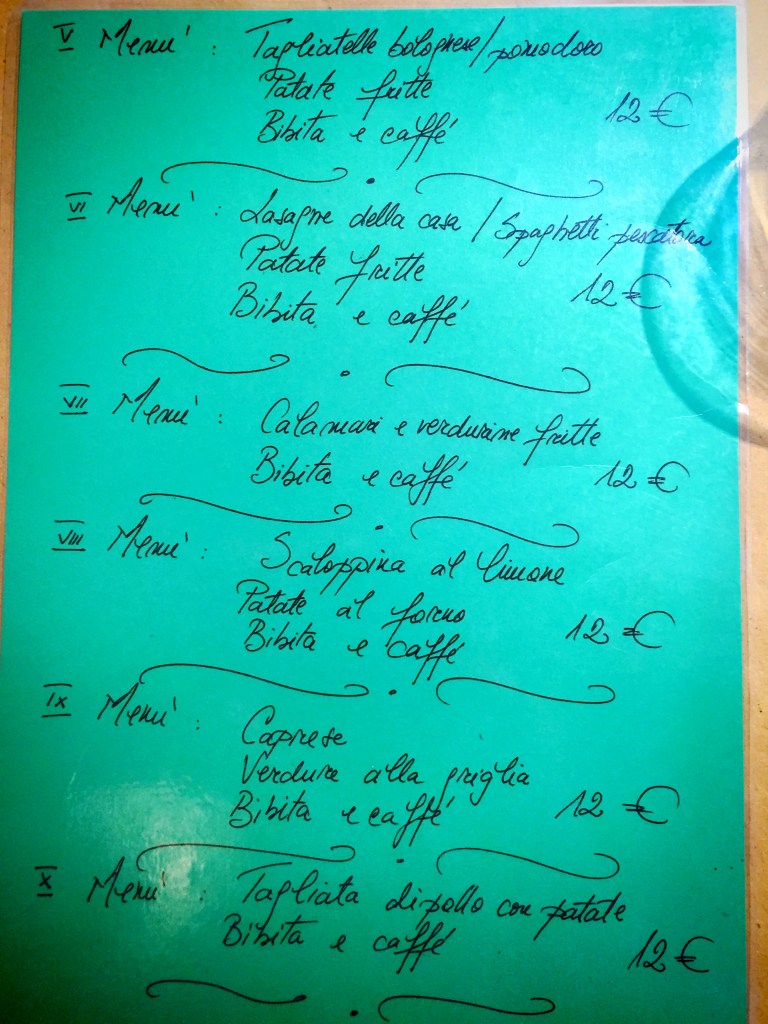 V Menù : Tagliatelle bolognese/pomodoro
Patate fritte
Bibita e caffé 12 €
VI Menù : Lasagne della casa / Spaghetti pescatora
Patate fritte
Bibita e caffé 12 €
VII Menù : Calamari e verdurine fritte
Bibita e caffé 12 €
VIII Menù : Scaloppina al limone
Patate al forno
Bibita e caffé 12 €
IX Menù : Caprese
Verdure alla griglia
Bibita e caffé 12 €
X Menù : Tagliata di pollo con patate
Bibita e caffé 12 €